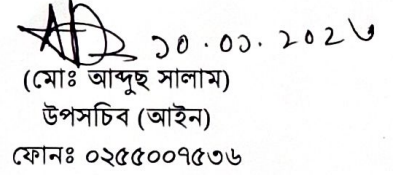 ১০.০১.২০২৬
(মোঃ আব্দুছ সালাম)
উপসচিব (আইন)
ফোনঃ ০২৫৫০০৭৫৩৬